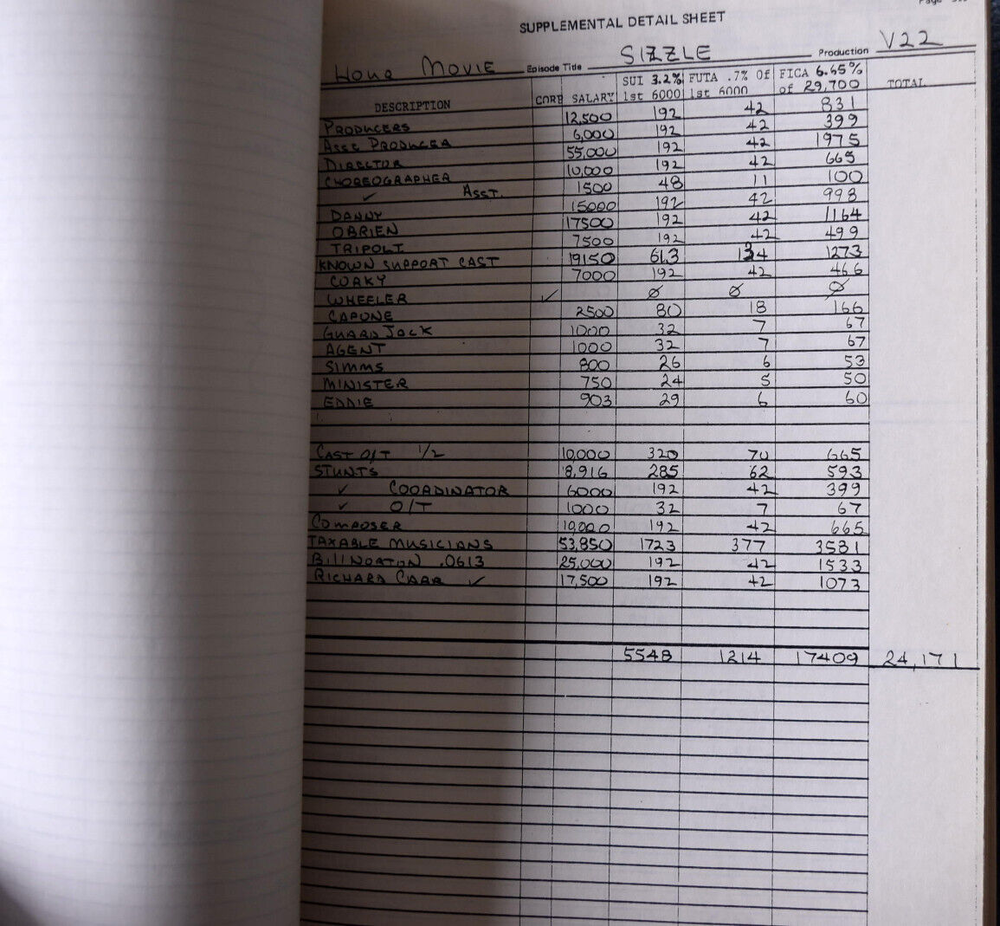 SUPPLEMENTAL DETAIL SHEET
Hour MOVIE Episode Title SIZZLE Production V22
DESCRIPTION CORP SALARY SUI 3.2% 1st 6000 FUTA .7% Of 1st 6000 FICA 6.65% of 29,700 TOTAL
PRODUCERS 12,500 192 42 831
ASST PRODUCER 6,000 192 42 399
DIRECTOR 55,000 192 42 1975
CHOREOGRAPHER 10,000 192 42 665
✓ ASST. 1500 48 11 100
DANNY 15000 192 42 998
OBRIEN 17500 192 42 1164
TRIPOLI 7500 192 42 499
KNOWN SUPPORT CAST 19150 613 134 1273
CORKY 7000 192 42 466
WHEELER ✓ Ø Ø Ø
CAPONE 2500 80 18 166
GUARD JOCK 1000 32 7 67
AGENT 1000 32 7 67
SIMMS 800 26 6 53
MINISTER 750 24 5 50
EDDIE 903 29 6 60
CAST O/T 1/2 10,000 320 70 665
STUNTS 8,916 285 62 593
✓ COORDINATOR 6000 192 42 399
✓ O/T 1000 32 7 67
COMPOSER 10,000 192 42 665
TAXABLE MUSICIANS 53,850 1723 377 3581
BILL NORTON .0613 25,000 192 42 1533
RICHARD CARR ✓ 17,500 192 42 1073
5548 1214 17409 24,171